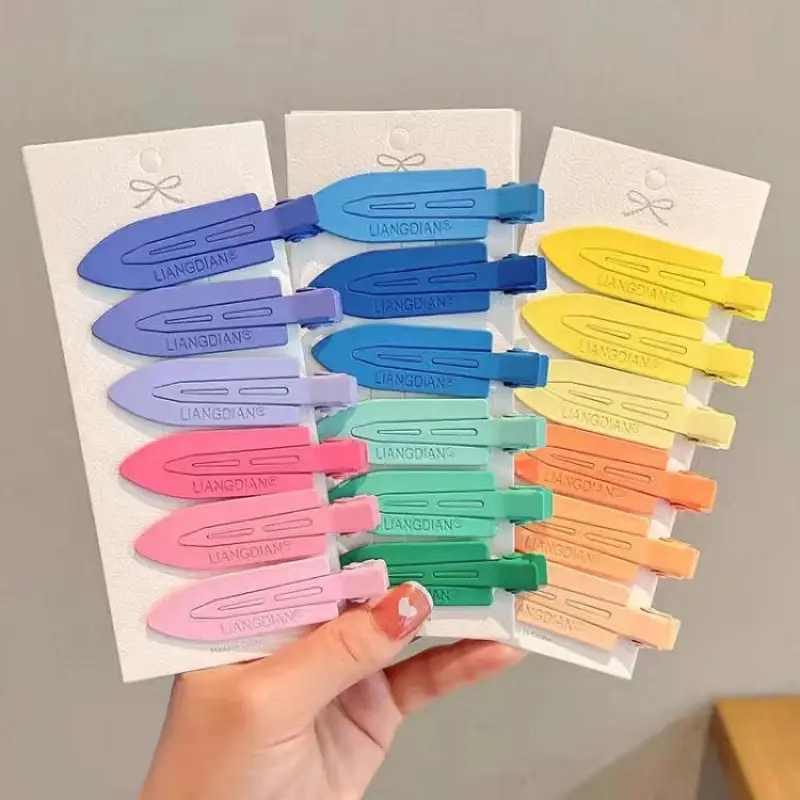 LIANGDIAN®
LIANGDIAN®
LIANGDIAN®
LIANGDIAN®
LIANGDIAN®
LIANGDIAN®
LIANGDIAN®
LIANGDIAN®
LIANGDIAN®
LIANGDIAN®
LIANGDIAN®
DIAN
LIANGDIAN®
LIANGDIAN®
LIANGDIAN®
LIANGDIAN®
LIANGDIAN®
NGDIAN®